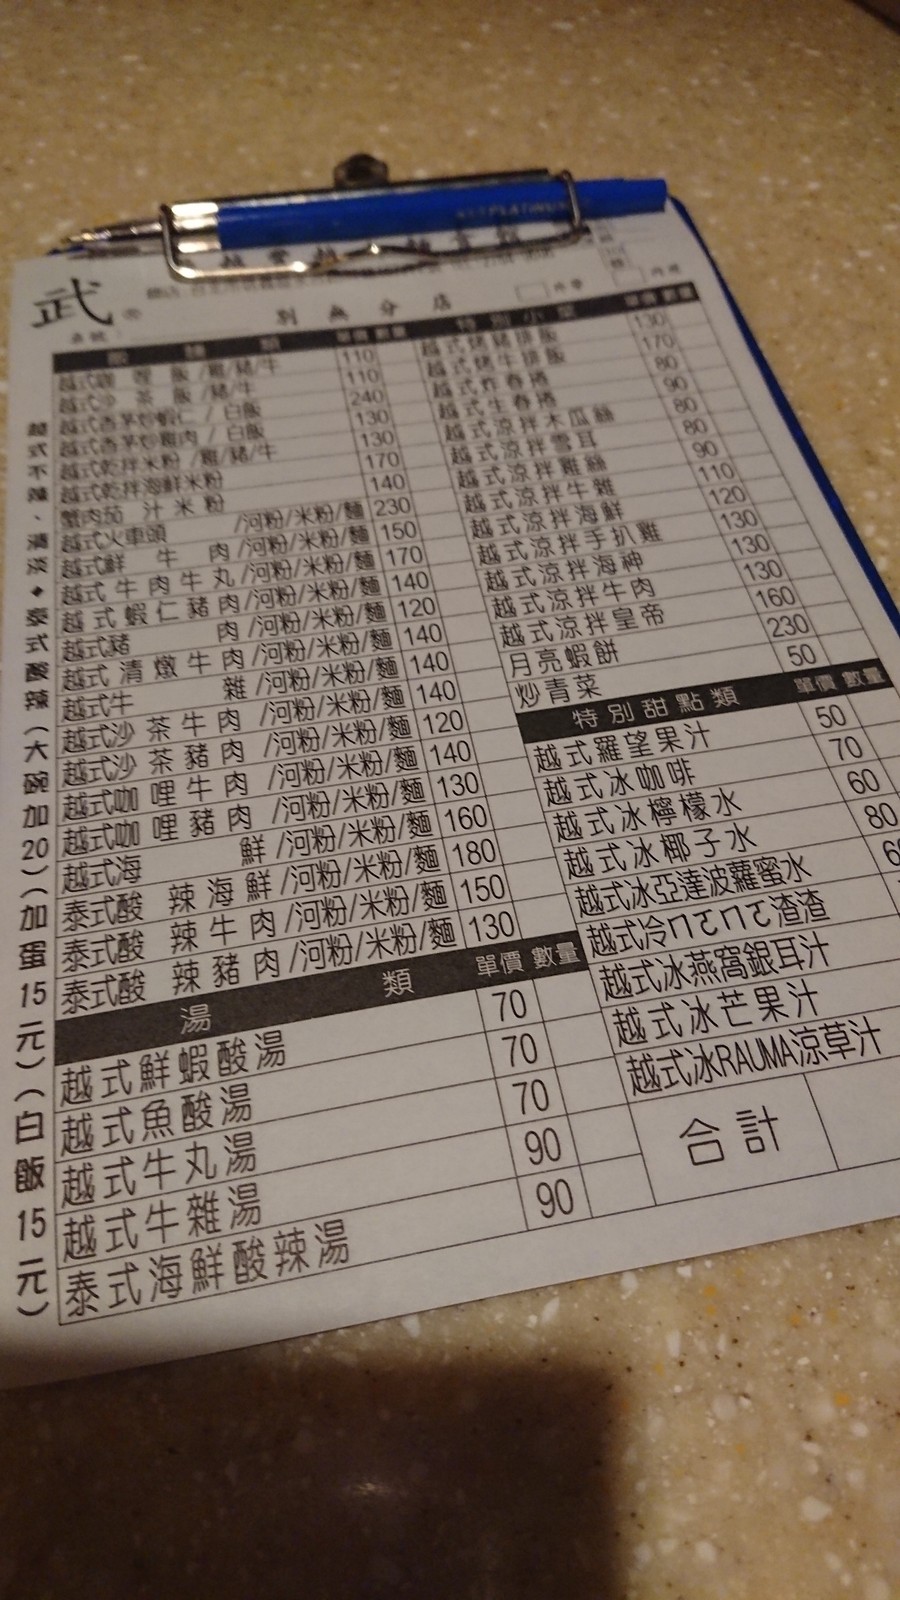 武®
別無分店
飯麵類 單價 數量
越式咖哩飯/雞/豬/牛 110
越式沙茶飯/豬/牛 110
越式香茅炒蝦仁/白飯 240
越式香茅炒雞肉/白飯 130
越式乾拌米粉/雞/豬/牛 130
越式乾拌海鮮米粉 170
蟹肉茄汁米粉 140
越式火車頭/河粉/米粉/麵 230
越式鮮牛肉/河粉/米粉/麵 150
越式牛肉牛丸/河粉/米粉/麵 170
越式蝦仁豬肉/河粉/米粉/麵 140
越式豬肉/河粉/米粉/麵 120
越式清燉牛肉/河粉/米粉/麵 140
越式牛雜/河粉/米粉/麵 140
越式沙茶牛肉/河粉/米粉/麵 140
越式沙茶豬肉/河粉/米粉/麵 120
越式咖哩牛肉/河粉/米粉/麵 140
越式咖哩豬肉/河粉/米粉/麵 130
越式海鮮/河粉/米粉/麵 160
泰式酸辣海鮮/河粉/米粉/麵 180
泰式酸辣牛肉/河粉/米粉/麵 150
泰式酸辣豬肉/河粉/米粉/麵 130
湯類 單價 數量
越式鮮蝦酸湯 70
越式魚酸湯 70
越式牛丸湯 70
越式牛雜湯 90
泰式海鮮酸辣湯 90
越式不辣、清淡◆泰式酸辣(大碗加20)(加蛋15元)(白飯15元)
特別小菜 單價 數量
越式烤豬排飯 130
越式烤牛排飯 170
越式炸春捲 80
越式生春捲 90
越式涼拌木瓜絲 80
越式涼拌雪耳 80
越式涼拌雞絲 90
越式涼拌牛雜 110
越式涼拌海鮮 120
越式涼拌手扒雞 130
越式涼拌海神 130
越式涼拌牛肉 130
越式涼拌皇帝 160
月亮蝦餅 230
炒青菜 50
特別甜點類 單價 數量
越式羅望果汁 50
越式冰咖啡 70
越式冰檸檬水 60
越式冰椰子水 80
越式冰亞達波蘿蜜水
越式冷ㄇㄛㄇㄛ渣渣
越式冰燕窩銀耳汁
越式冰芒果汁
越式冰RAUMA涼草汁
合計